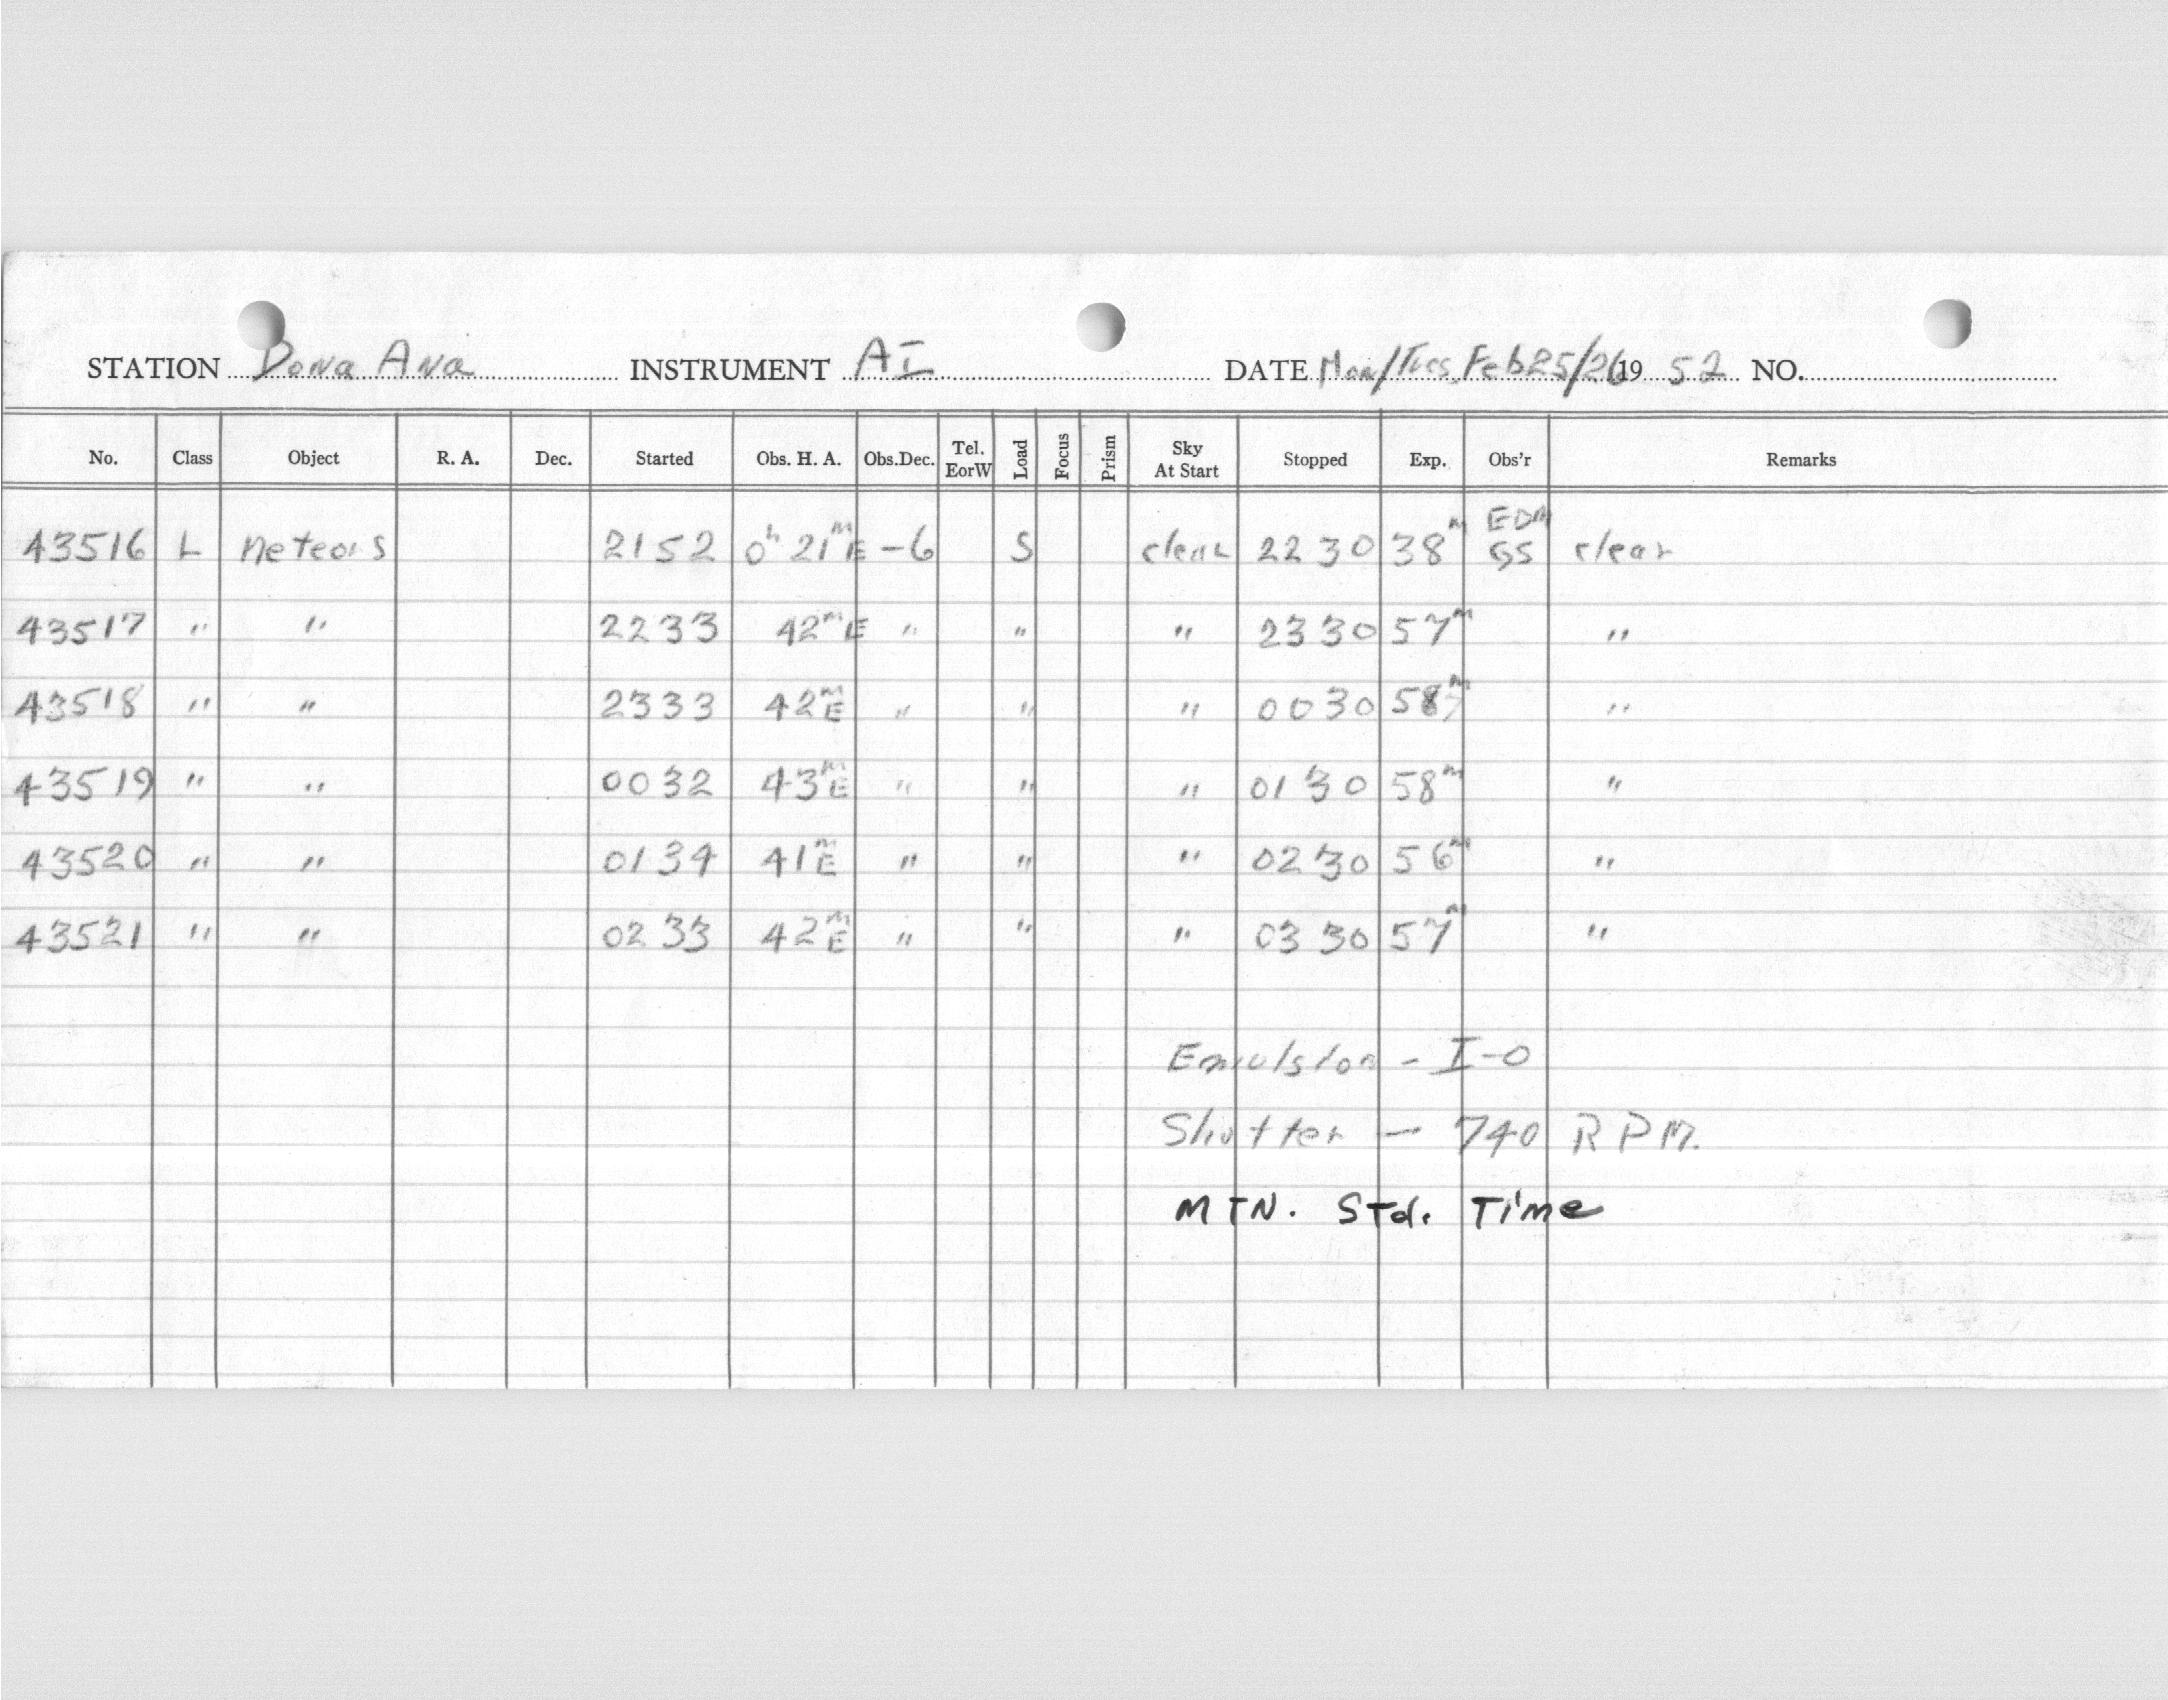 STATION Dona Ana INSTRUMENT AI DATE Mon/Tues. Feb 25/26 19 52 NO.
No. Class Object R. A. Dec. Started Obs. H. A. Obs.Dec. Tel. EorW Load Focus Prism Sky At Start Stopped Exp. Obs'r Remarks
43516 L meteors 2152 0h 21m E -6 S clear 2230 38m EDM SS clear
43517 " " 2233 42m E " " " 2330 57m "
43518 " " 2333 42m E " " " 0030 "
43519 " " 0032 43m E " " " 0130 58m "
43520 " " 0134 41m E " " " 0230 56m "
43521 " " 0233 42m E " " " 0330 57m "
Emulsion - I-O
Shutter - 740 RPM.
MTN. Std. Time